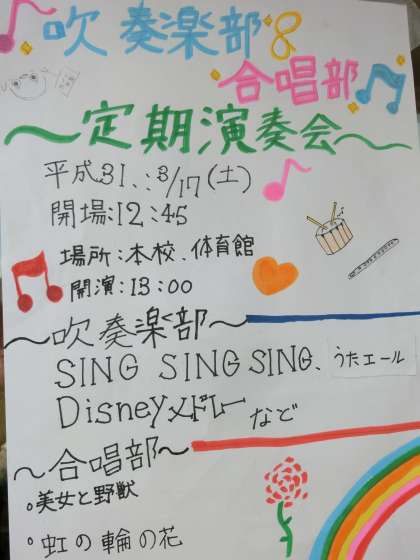 吹奏楽部&
合唱部
〜定期演奏会〜
平成31.:3/17(土)
開場:12:45
場所:本校、体育館
開演:13:00
〜吹奏楽部〜
SING SING SING、うたエール
Disneyメドレー など
〜合唱部〜
。美女と野獣
。虹の輪の花